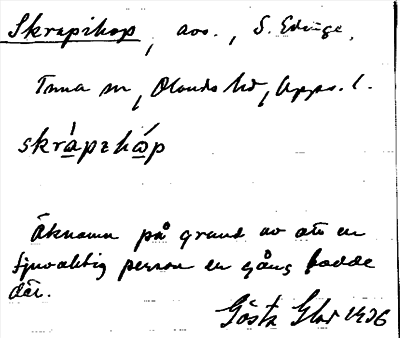 Skrapihop, avs., S. Edinge,
Tuna sn, Olands hd, Upps. l.
skrápɛhóp
Öknamn på grund av att en
tjuvaktig person en gång bodde
där.
Gösta